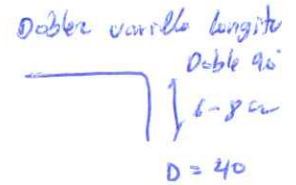 Doblez varilla longitu
Doble 90
6-8 cm
D = 40